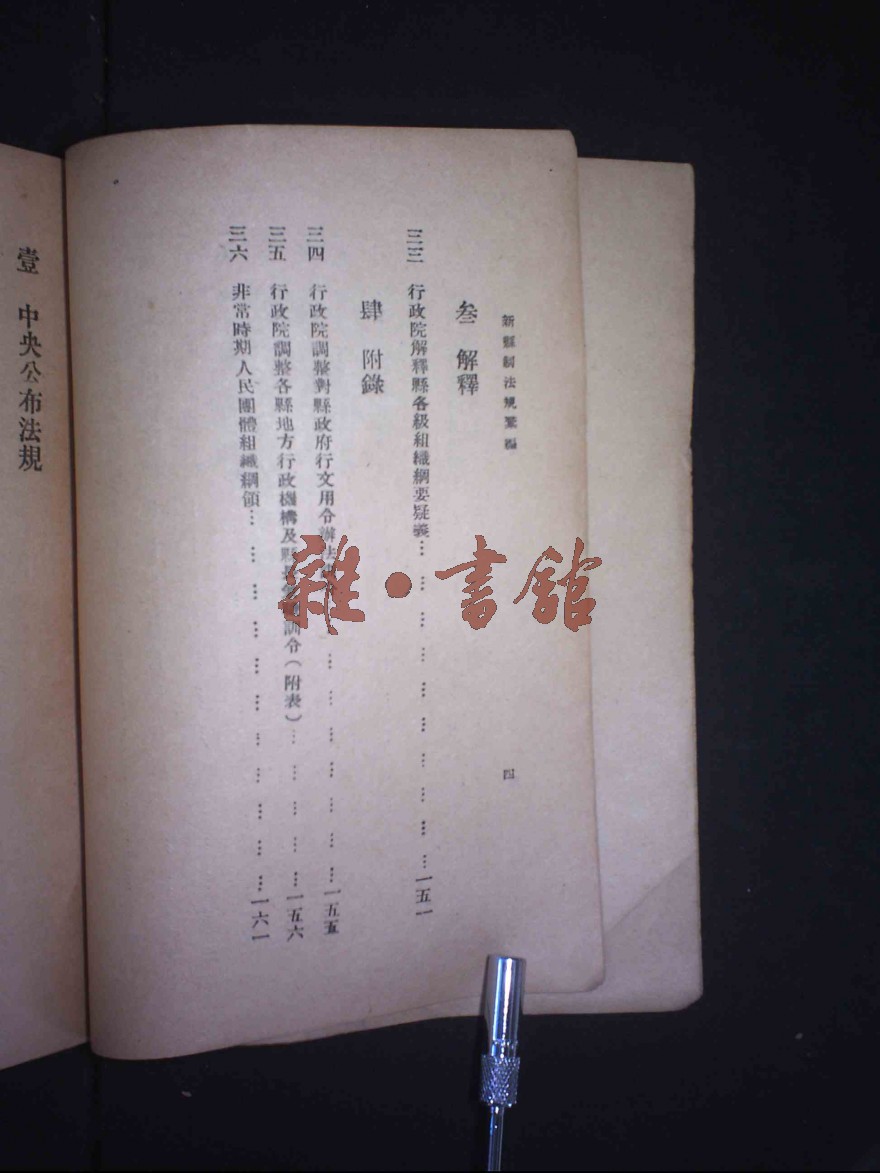 新縣制法規彙編
四
叁 解釋
三三 行政院解釋縣各級組織綱要疑義……一五一
肆 附錄
三四 行政院調整對縣政府行文用令辦法……一五五
三五 行政院調整各縣地方行政機構及縣 令(附表)……一五六
三六 非常時期人民團體組織綱領……一六一
壹 中央公布法規
雜·書館